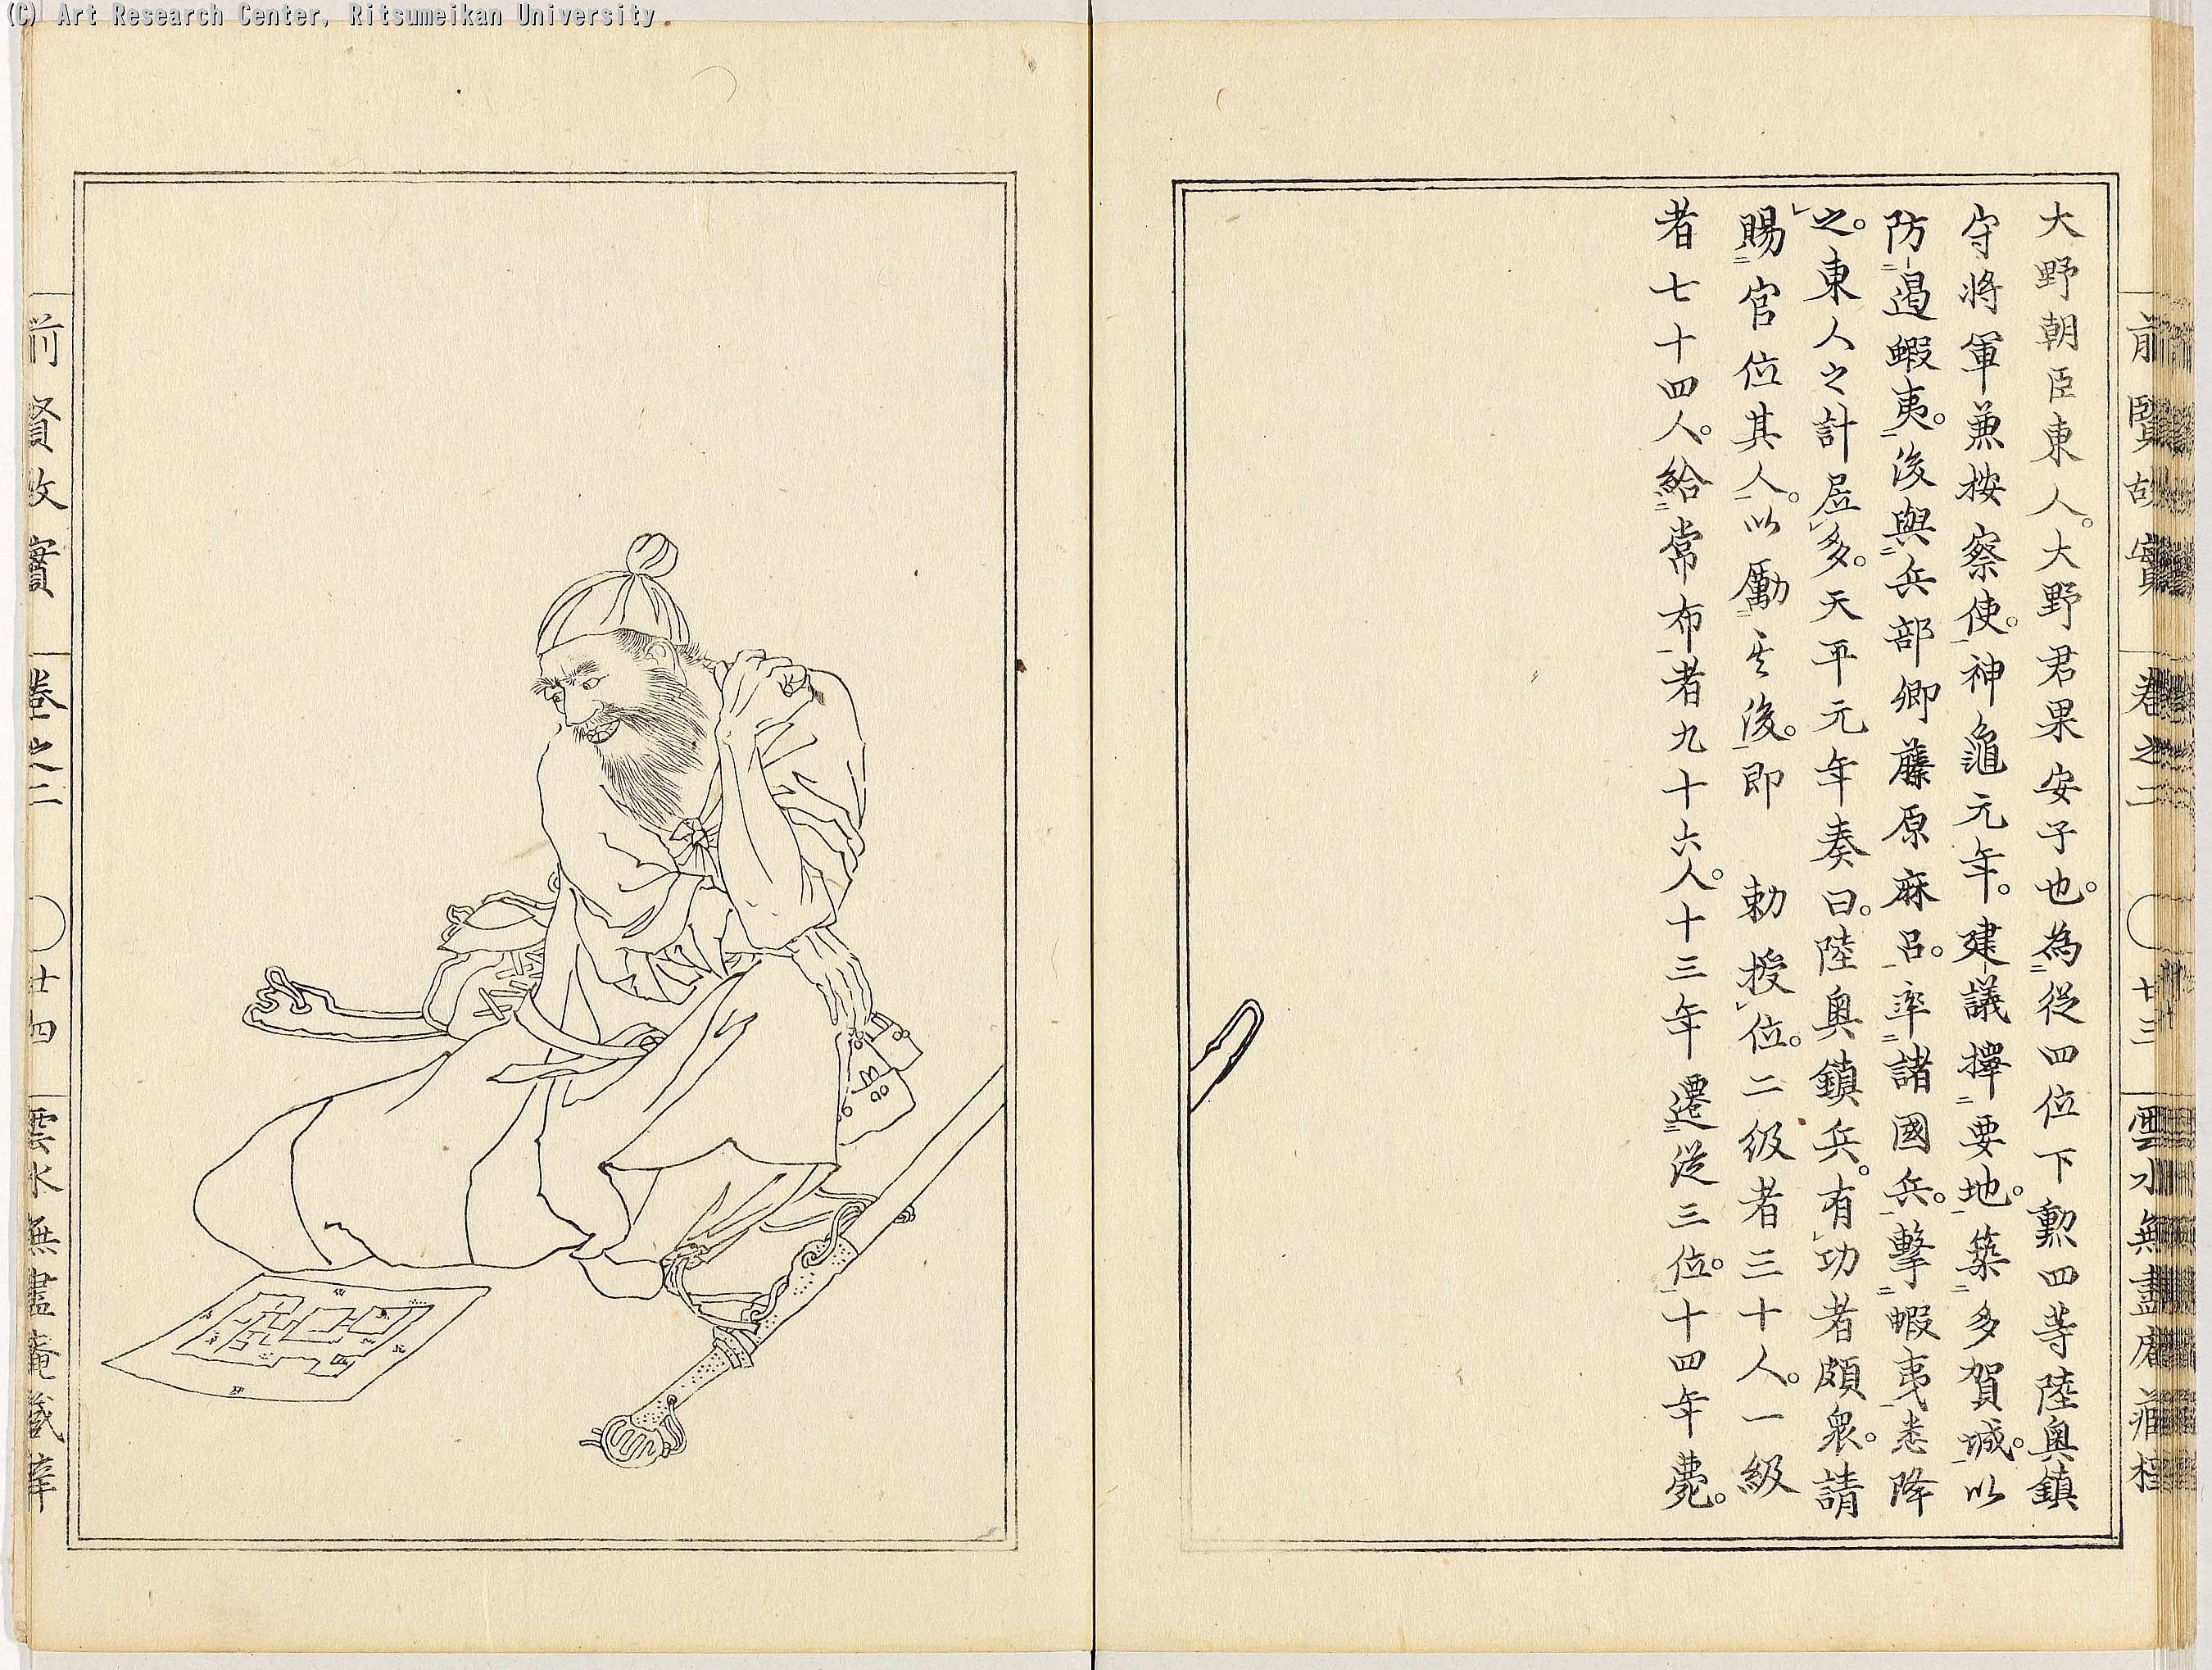 (C) Art Research Center, Ritsumeikan University
前賢故實 卷之二 廿三 雲水無盡庵藏梓
大野朝臣東人。大野君果安子也。為二從四位下勲四等陸奥鎮
守將軍兼按察使一。神龜元年。建議擇二要地一。築二多賀城一。以
防二遏蝦夷一。後與二兵部卿藤原麻呂一。率二諸國兵一。擊二蝦夷一悉降
レ之。東人之計居レ多。天平元年奏曰。陸奥鎮兵。有レ功者頗衆。請
賜二官位其人一。以勵二其後一。即 勅授レ位。二級者三十人。一級
者七十四人。給二常布一者九十六人。十三年遷二從三位一。十四年薨。
前賢故實 卷之二 廿四 雲水無盡庵藏梓